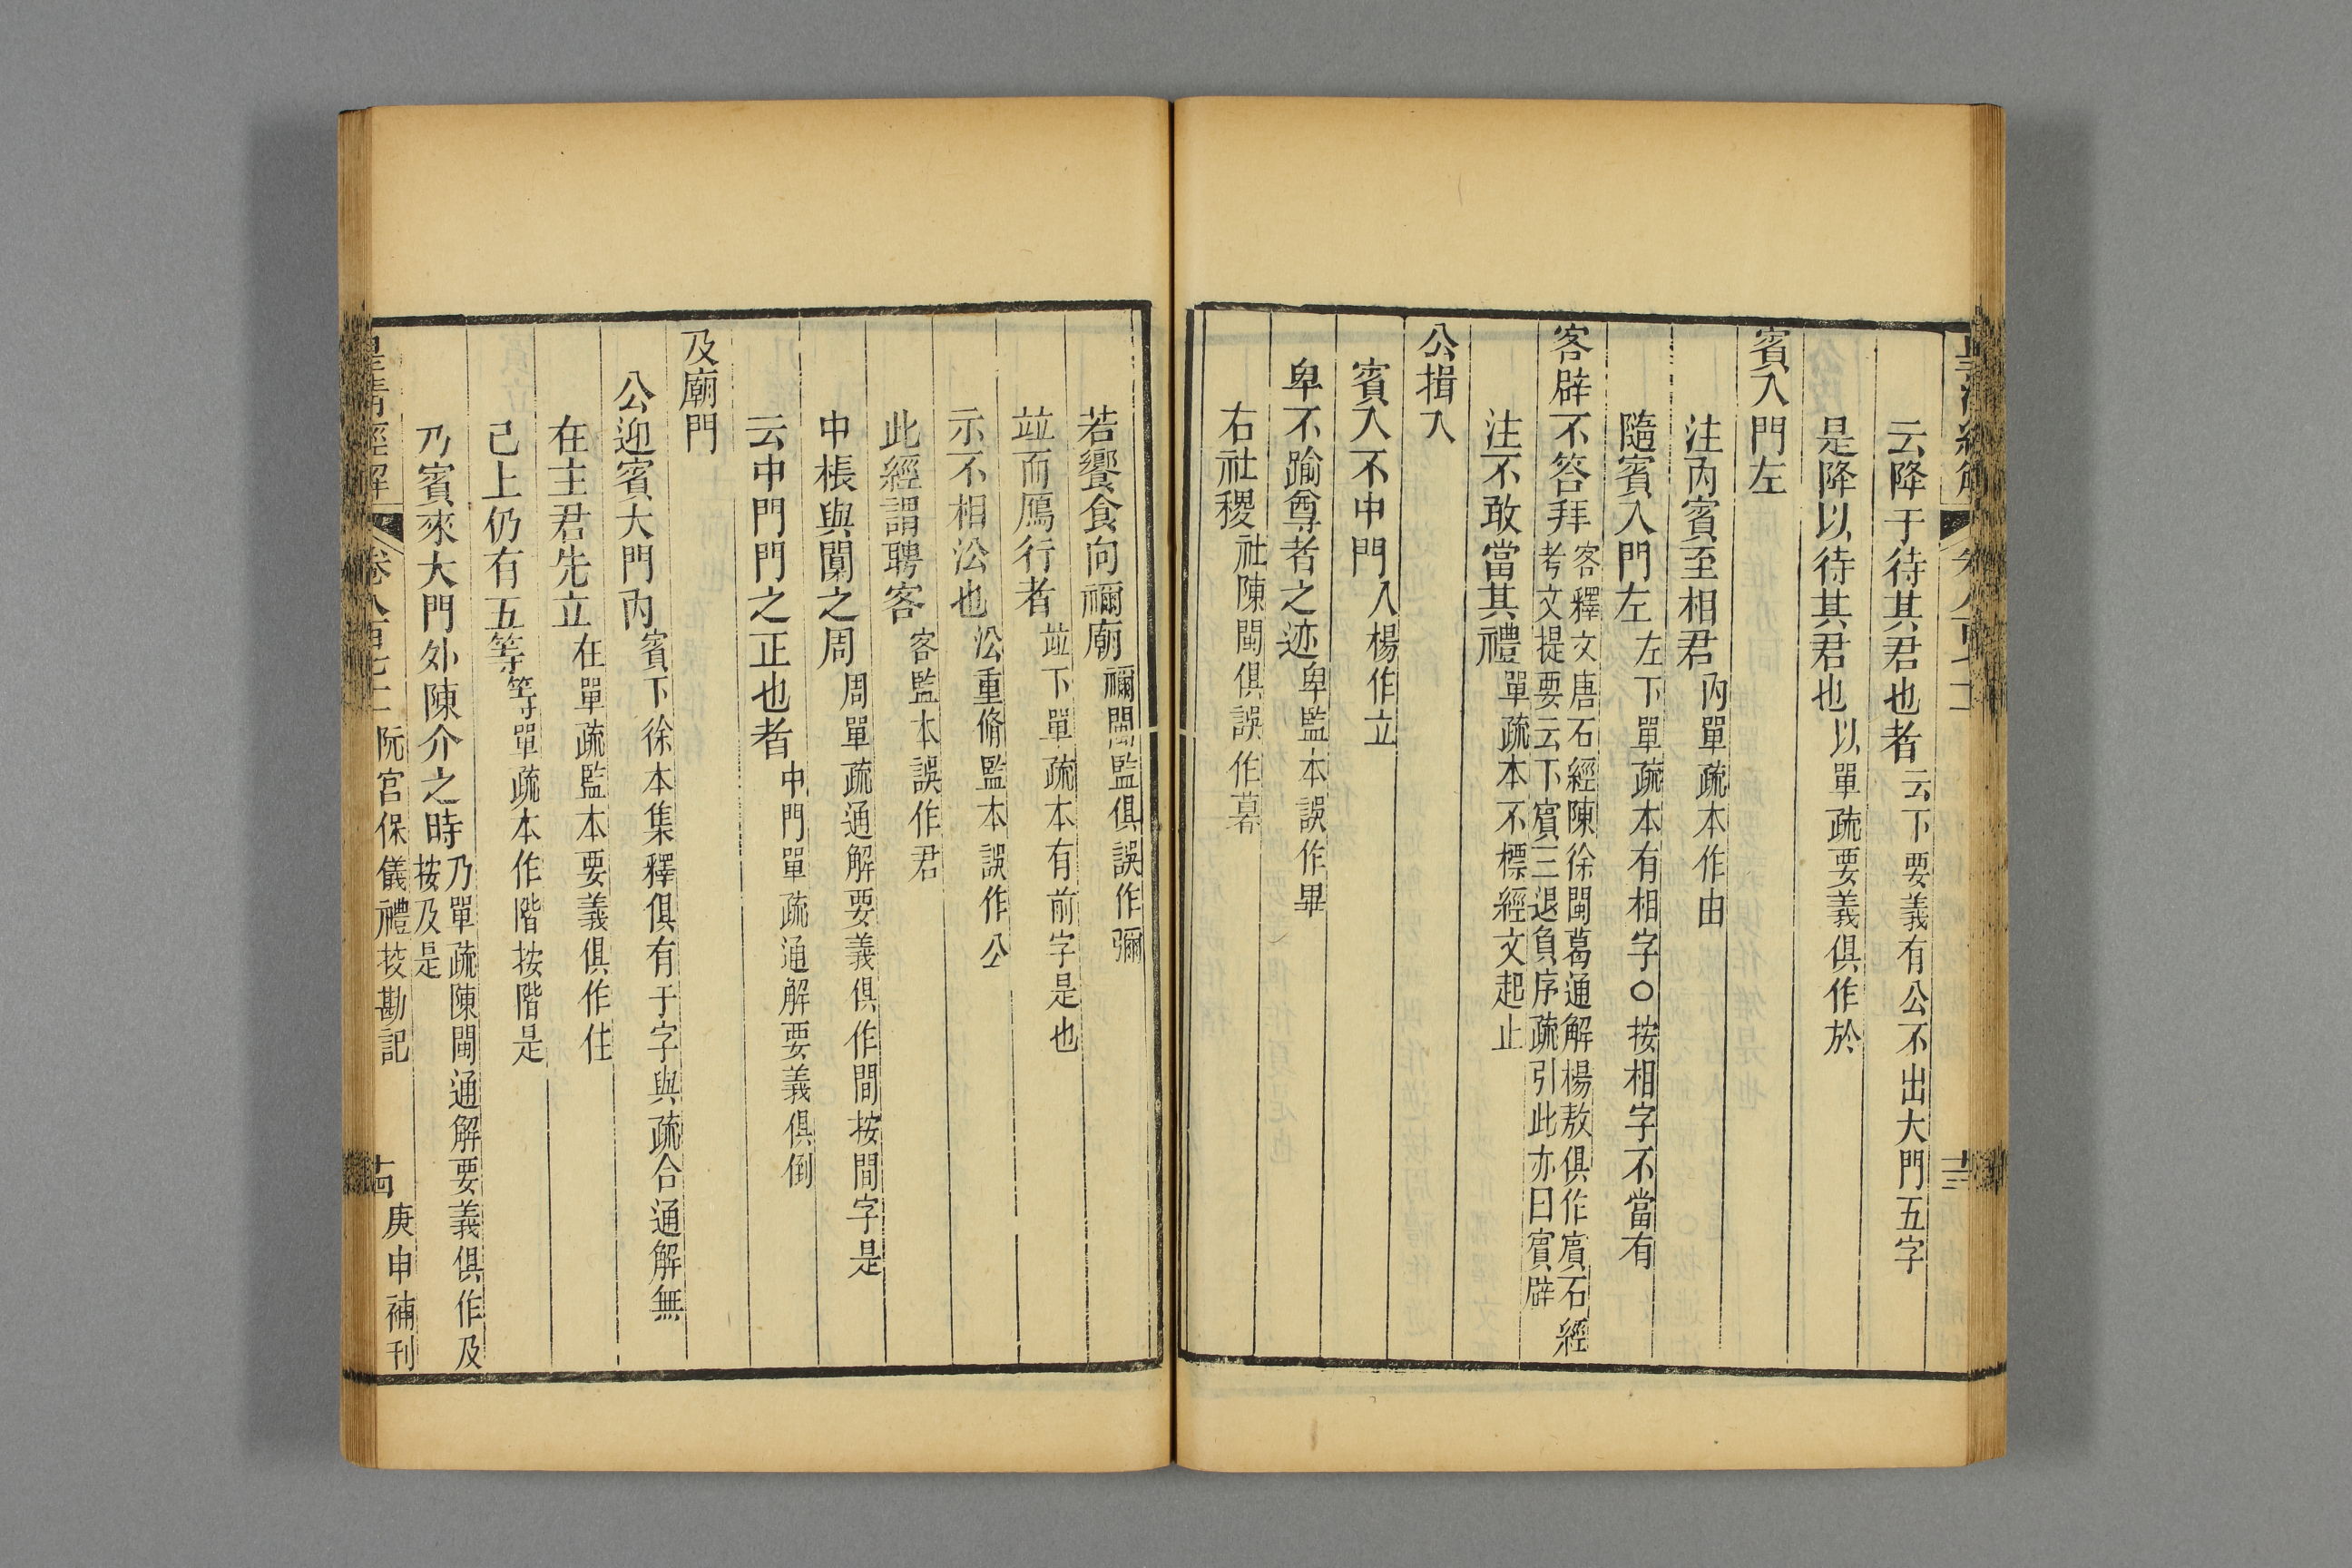 云降于待其君也者云下要義有公不出大門五字
是降以待其君也以單疏要義俱作於
賓入門左
注內賓至相君內單疏本作由
隨賓入門左左下單疏本有相字○按相字不當有
客辟不答拜客釋文唐石經陳徐閩葛通解楊敖俱作賓石經
考文提要云下賓三退負序疏引此亦曰賓辟
注不敢當其禮單疏本不標經文起止
公揖入
賓入不中門入楊作立
卑不踰尊者之迹卑監本誤作畢
右社稷社陳閩俱誤作幕
若饗食向禰廟禰閩監俱誤作彌
竝而鴈行者竝下單疏本有前字是也
示不相沿也沿重脩監本誤作公
此經謂聘客客監本誤作君
中棖與闑之周周單疏通解要義俱作間按間字是
云中門門之正也者中門單疏通解要義俱倒
及廟門
公迎賓大門內賓下徐本集釋俱有于字與疏合通解無
在主君先立在單疏監本要義俱作住
己上仍有五等等單疏本作階按階是
乃賓來大門外陳介之時乃單疏陳閩通解要義俱作及
按及是
皇清經解 卷八百七十二 阮宮保儀禮挍勘記 十四 庚申補刊